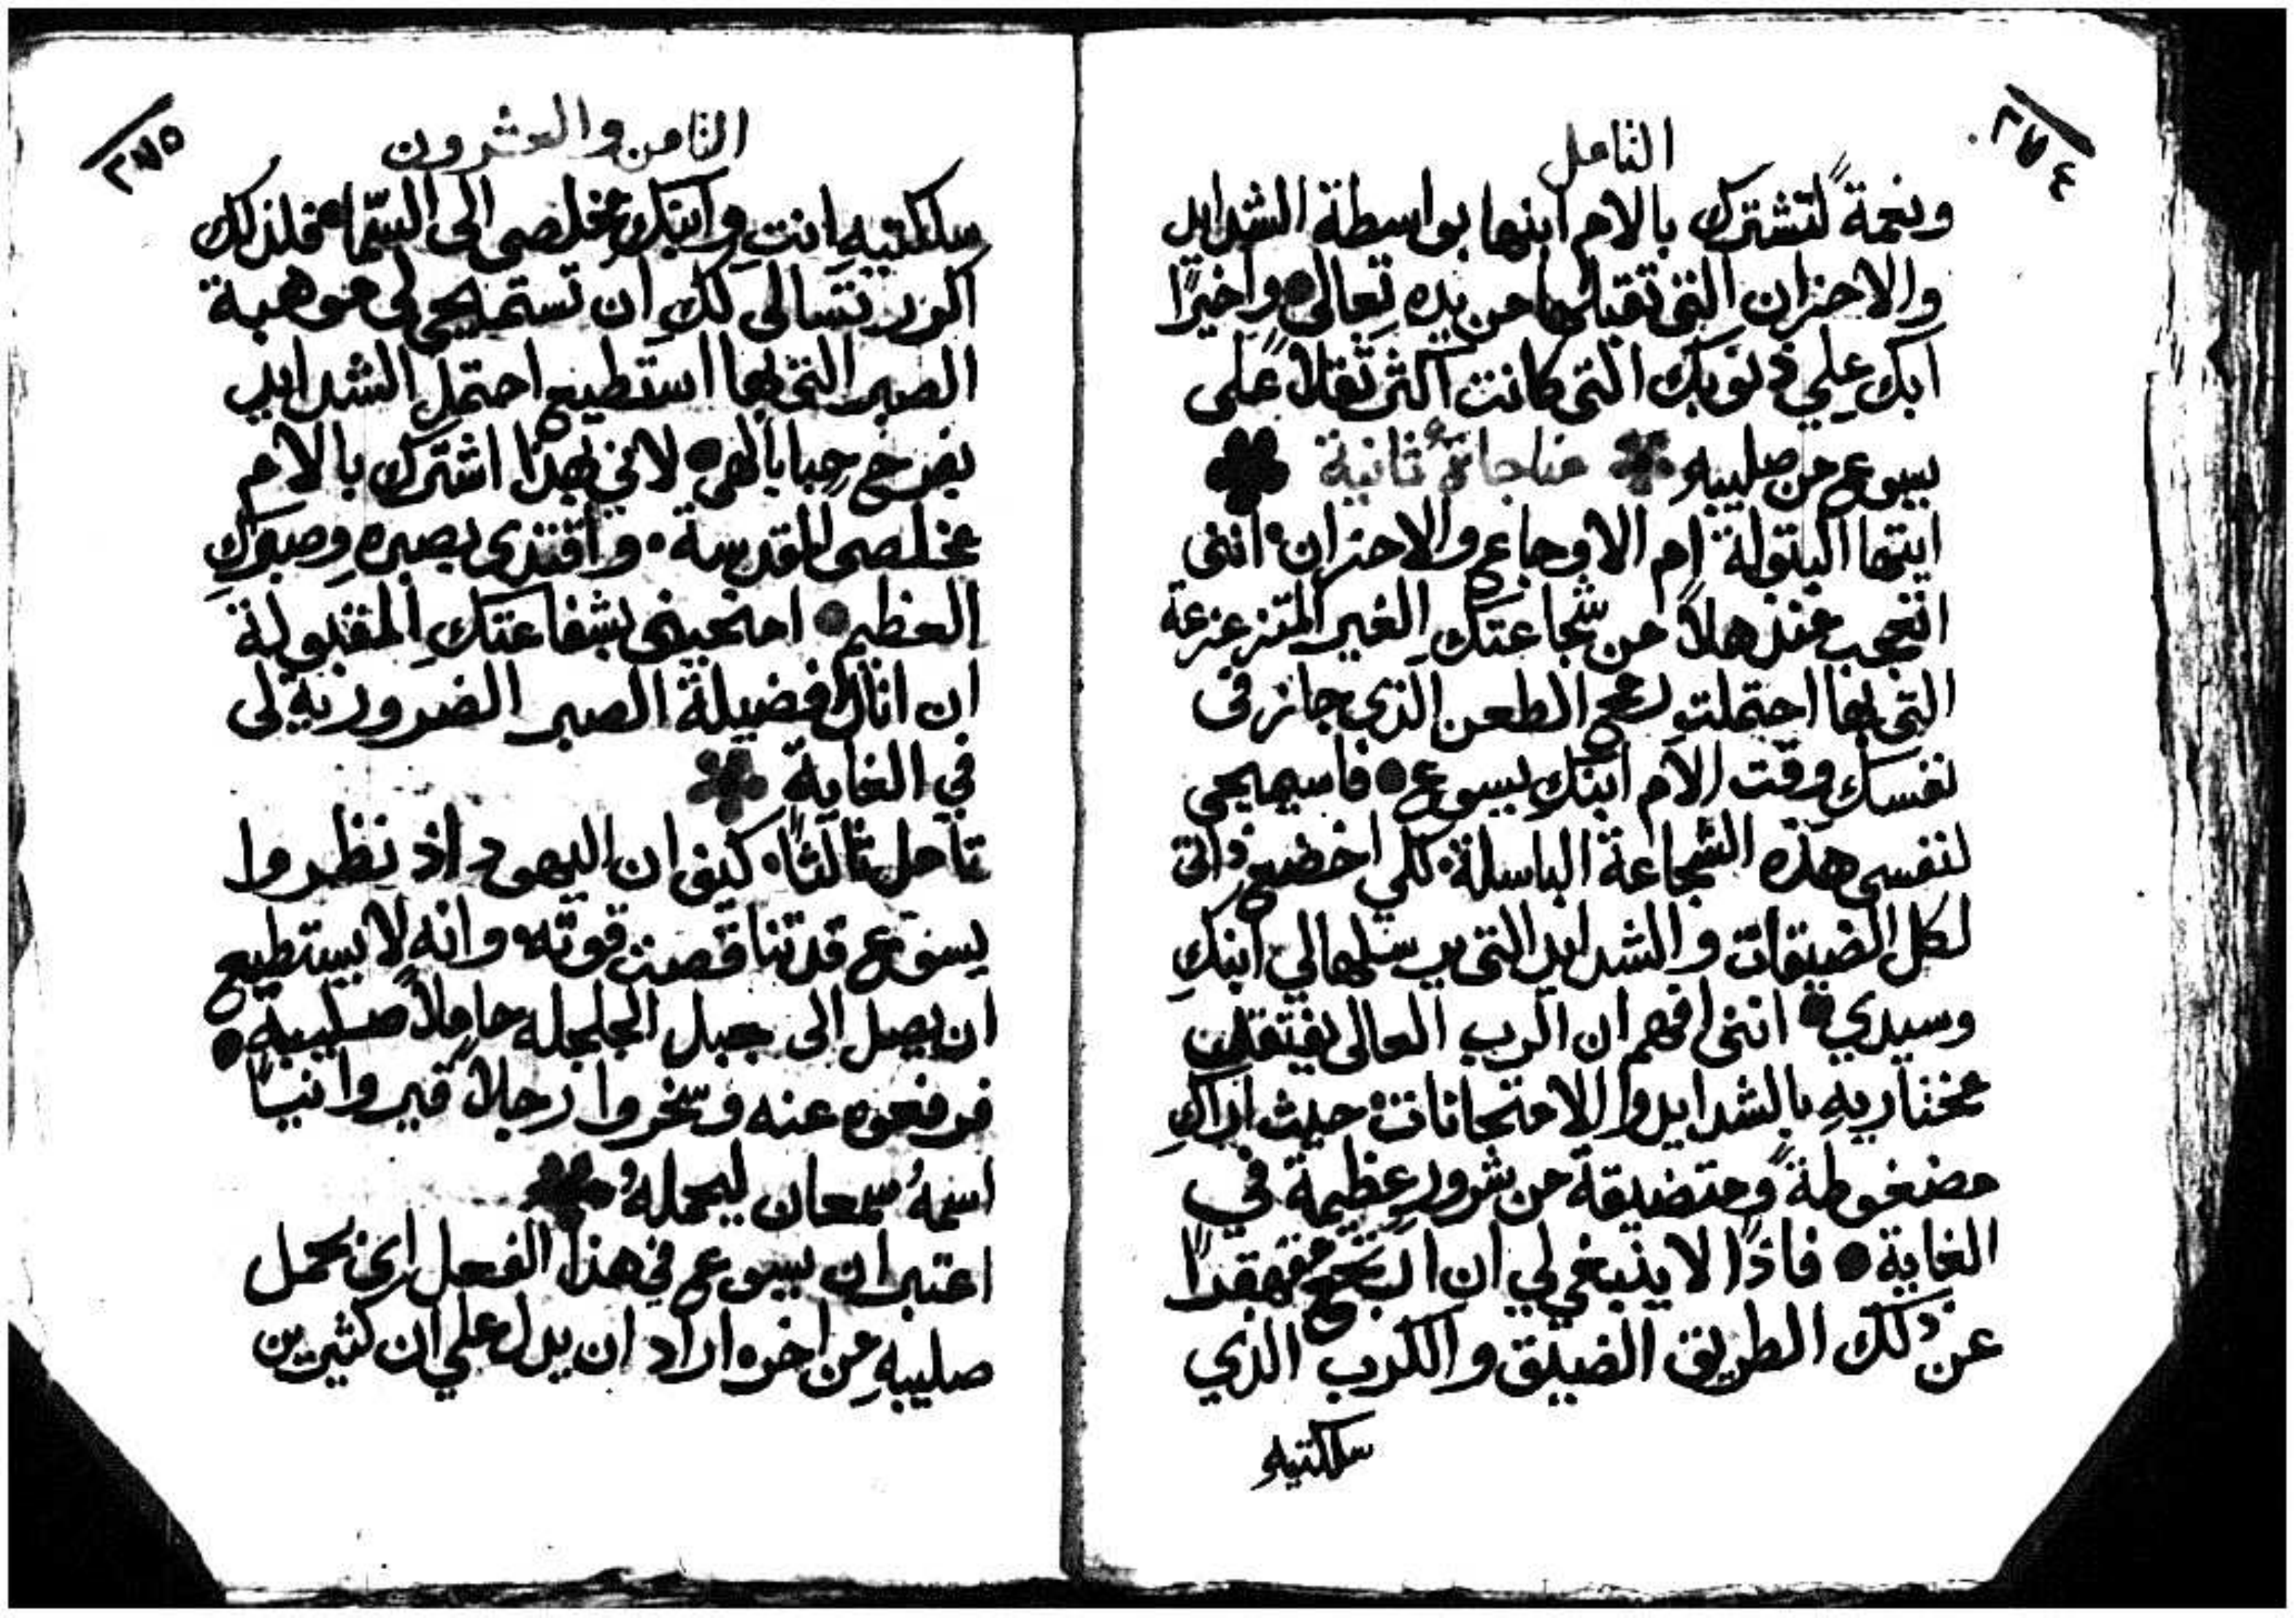 ٢٧٤
التامل
ونعمةً لتشترك بالام ابنها بواسطة الشدايد
والاحزان التى تقبلها من يده تعالى واخيرًا
ابك علي ذنوبك التى كانت اكثر ثقلاً على
يسوع من صليبه مناجاةٌ ثانية
ايتها البتولة ام الاوجاع والاحزان انني
اتعجب منذهلاً من شجاعتكِ الغير المتزعزعة
التى بها احتملتِ الطعن الذي جاز في
نفسك وقت الام ابنك يسوع فاسيميحى
لنفسى هذه الشجاعة الباسلة لكي اخضع ذاتى
لكل الضيقات والشدايد التى يرسلها لي ابنكِ
وسيدي اننى افهم ان الرب العالى يفتقد
مختاريه بالشدايد والامتحانات حيث اراكِ
مضغوطةً ومتضيقة من شرورٍ عظيمة في
الغاية فاذًا لا ينبغي لي ان ارتجع قهقرًا
عن ذلك الطريق الضيق والكرب الذي
سلكتيه
٢٧٥
الثامن والعشرون
سلكتيه انتِ وابنكِ مخلصى الى السّما فلذلك
اتضرع لكِ ان تستميحى لى موهبة
الصبر التى بها استطيع احتمل الشدايد
بفرح حبا بالهى لاني بهذا اشترك بالام
مخلصى المقدسة واقتدى بصبره وصبركِ
العظيم امنحينى بشفاعتكِ المقبولة
ان انال فضيلة الصبر الضرورية لى
في الغاية
تامل ثالثًا كيف ان اليهود اذ نظروا
يسوع قد تناقصت قوته وانه لا يستطيع
ان يصل الى جبل الجلجله حاملاً صليبه
فرفعوه عنه وسخروا رجلاً قيروانيًا
اسمهُ سمعان ليحملهُ
اعتبر ان يسوع في هذا الفعل اى حمل
صليبهِ من اخر اراد ان يدل علي ان كثيرين